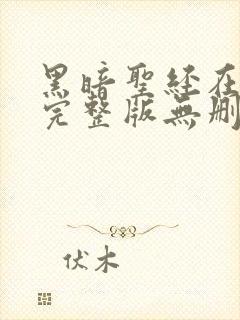 黑暗聖経在
完整版無刪
伏木